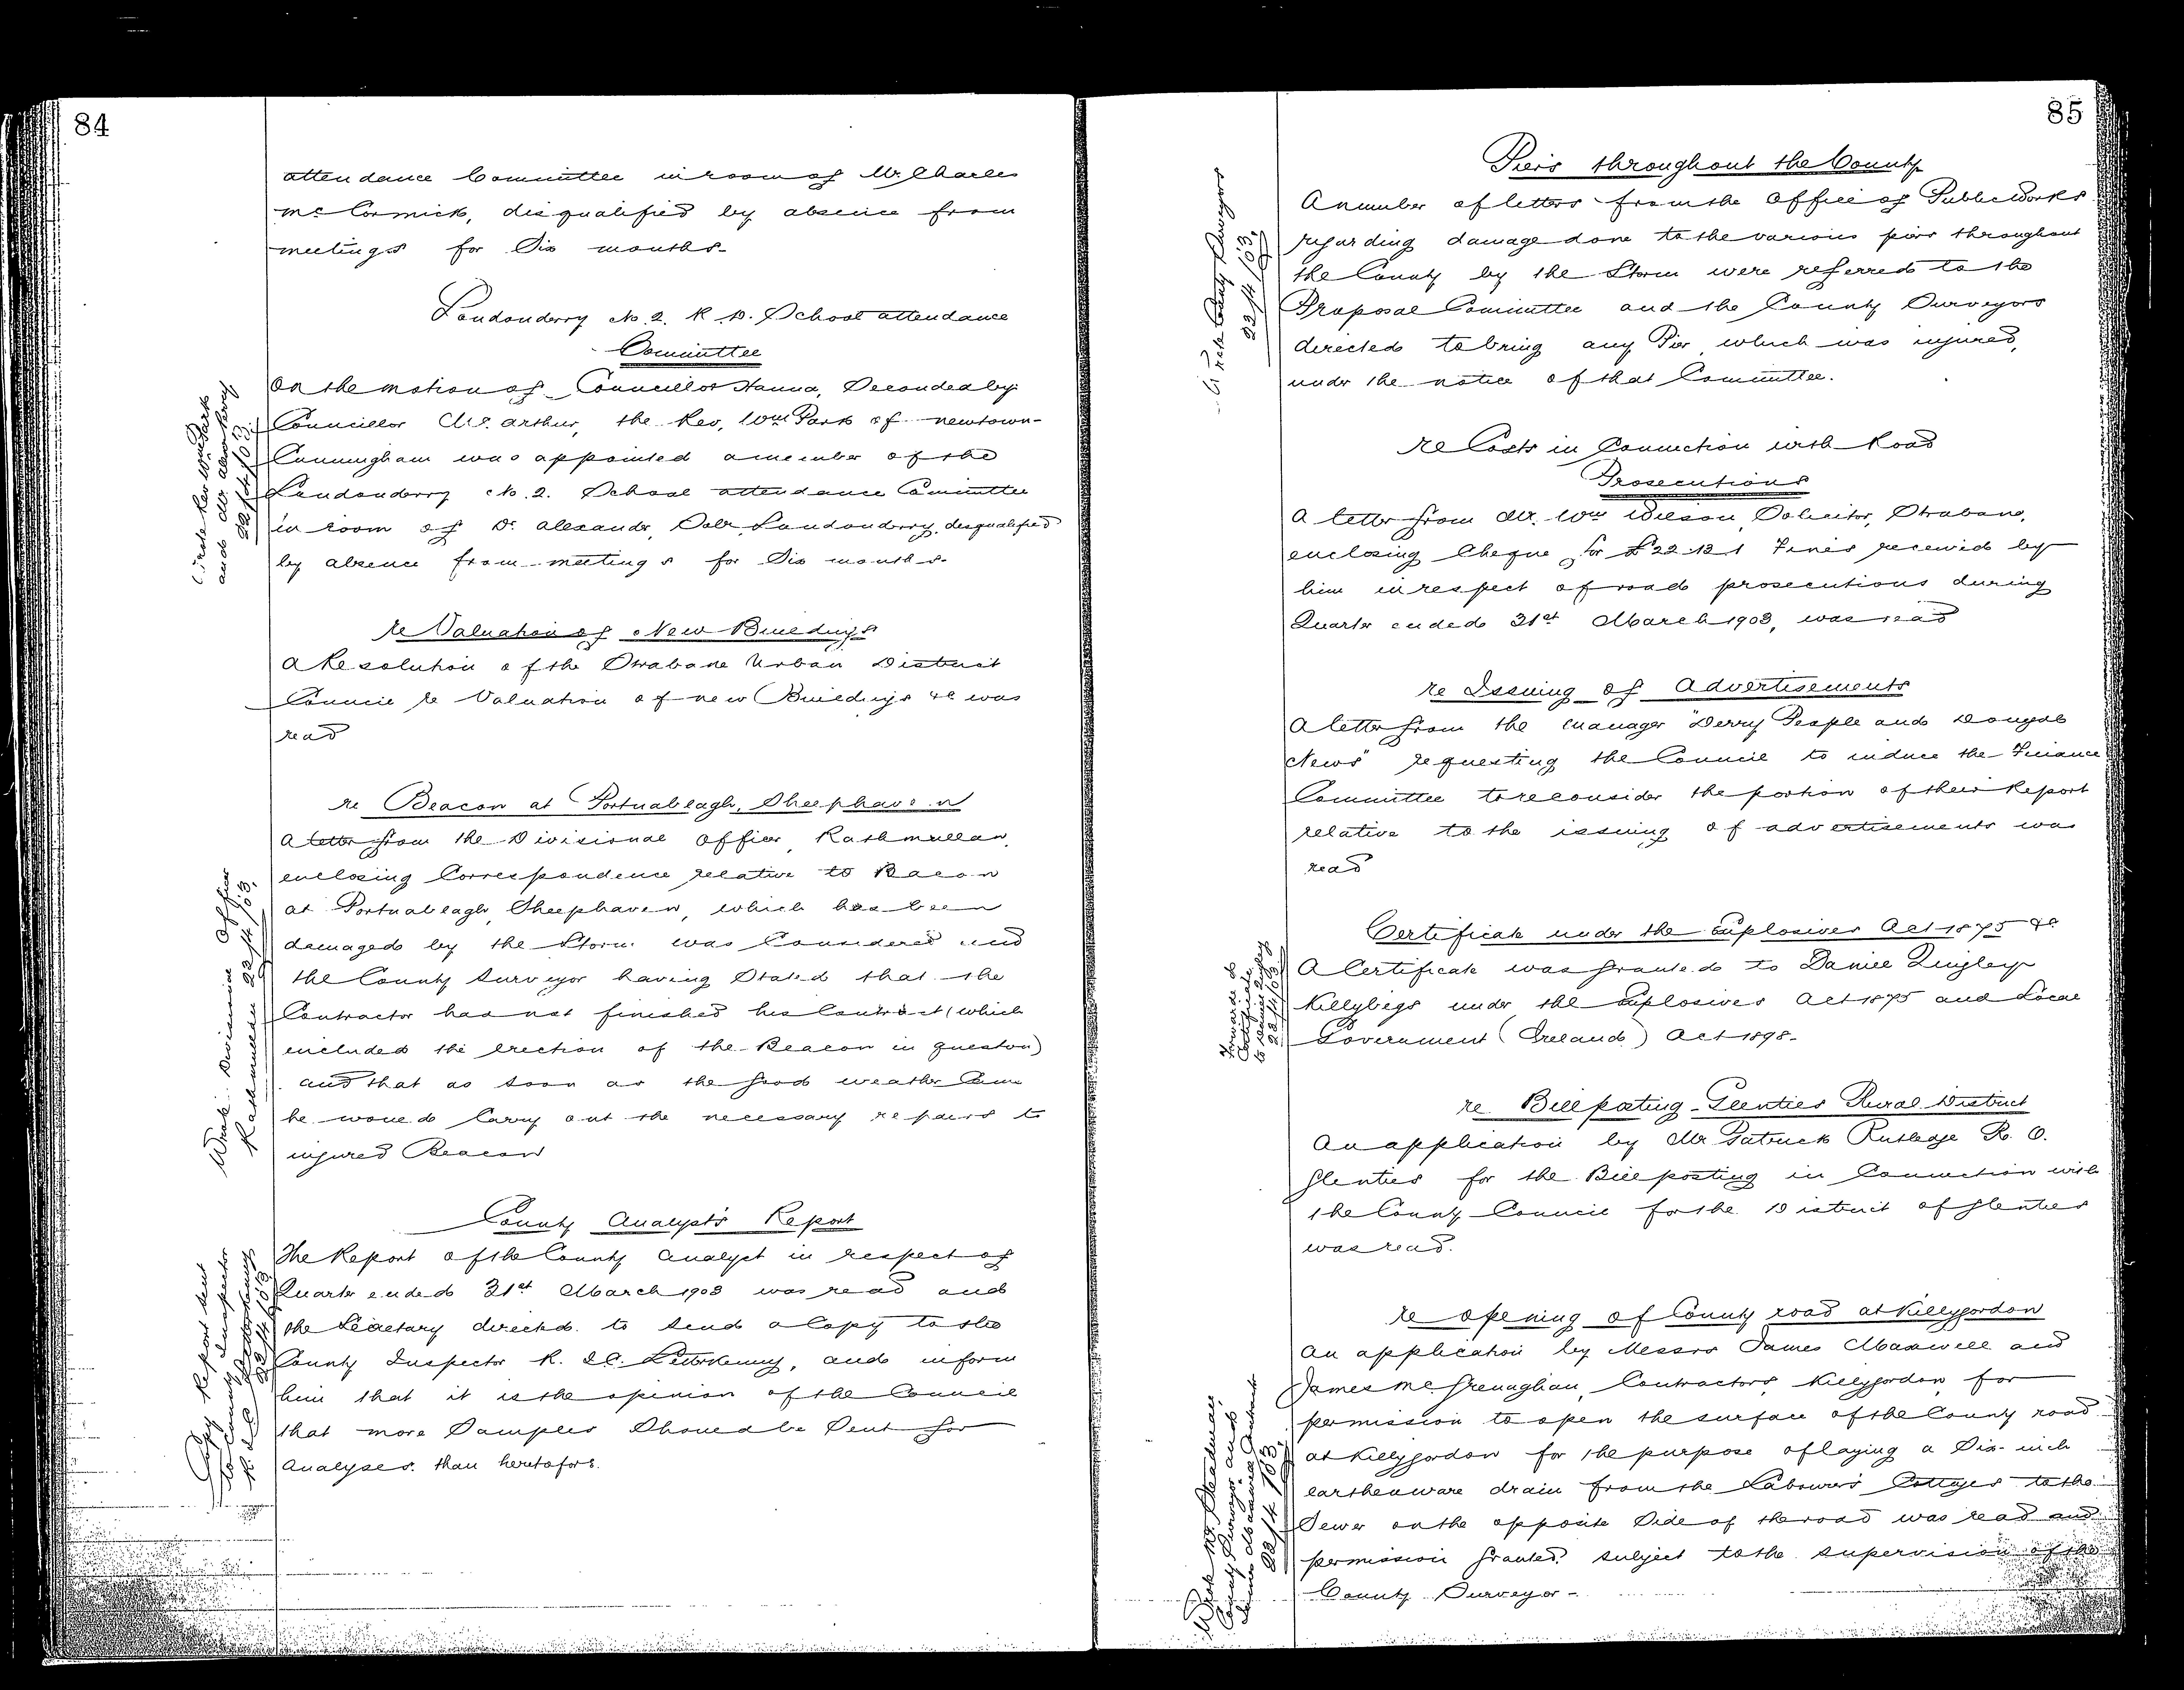 84
attendance Committee in room of Mr. Charles
McCormick, disqualified by absence from
meetings for Six months.
Londonderry No. 2. R.D. School attendance
Committee
On the motion of Councillor Hanna, Seconded by
Councillor McArthur, the Rev. Wm Park of Newtown-
Cunningham was appointed a member of the
Londonderry No. 2. School attendance Committee
in room of Dr. Alexander, Londonderry, disqualified
by absence from meetings for Six months.
Wrote Rev Wm Park
and Dr Alexander
22/4/03.
re Valuation of New Buildings
A Resolution of the Strabane Urban District
Council re Valuation of new Buildings &c was
read
re Beacon at Portnablagh, Sheephaven
A letter from the Divisional Officer, Rathmullan,
enclosing Correspondence relative to Beacon
at Portnablagh, Sheephaven, which has been
damaged by the Storm was Considered and
the County Surveyor having Stated that the
Contractor has not finished his Contract (which
included the erection of the Beacon in question)
and that as soon as the good weather Came
he would Carry out the necessary repairs to
injured Beacon
Wrote Divisional Officer
Rathmullan 22/4/03.
County Analyst's Report
The Report of the County Analyst in respect of
Quarter ended 31st March 1903 was read and
the Secretary directed to send a Copy to the
County Inspector R.I.C. Letterkenny, and inform
him that it is the opinion of the Council
that more Samples Should be Sent for
Analyses than heretofore.
Copy Report sent
to County Inspector
R.I.C. Letterkenny
22/4/03
85
Piers throughout the County
A number of letters from the Office of Public Works
regarding damage done to the various piers throughout
the County by the Storm were referred to the
Proposal Committee and the County Surveyors
directed to bring any Pier which was injured,
under the notice of that Committee.
Wrote County Surveyors
22/4/03.
Re Costs in Connection with Road
Prosecutions
A letter from Mr. Wm Wilson, Solicitor, Strabane,
enclosing Cheque for £22.12.1 Fines received by
him in respect of road prosecutions during
Quarter ended 31st March 1903, was read
re Issuing of Advertisements
A letter from the Manager "Derry People and Donegal
News" requesting the Council to induce the Finance
Committee to reconsider the portion of their Report
relative to the issuing of advertisements was
read
Certificate under the Explosives Act 1875 &c
A Certificate was granted to Daniel Quigley
Killybegs under the Explosives Act 1875 and Local
Government (Ireland) Act 1898.
Forwarded
Certificate
to Daniel Quigley
22/4/03
re. Billposting - Glenties Rural District
An application by Mr Patrick Rutledge R.O.
Glenties for the Billposting in Connection with
the County Council for the District of Glenties
was read.
re opening of County road at Killygordon
An application by Messrs James Maxwell and
James McGrenaghan, Contractors, Killygordon for
permission to open the surface of the County road
at Killygordon for the purpose of laying a Six-inch
earthenware drain from the Labourers Cottages to the
Sewer on the opposite Side of the road was read and
permission granted subject to the supervision of the
County Surveyor -
Wrote Mr. Steadman
County Surveyor and
James Maxwell
22/4/03.